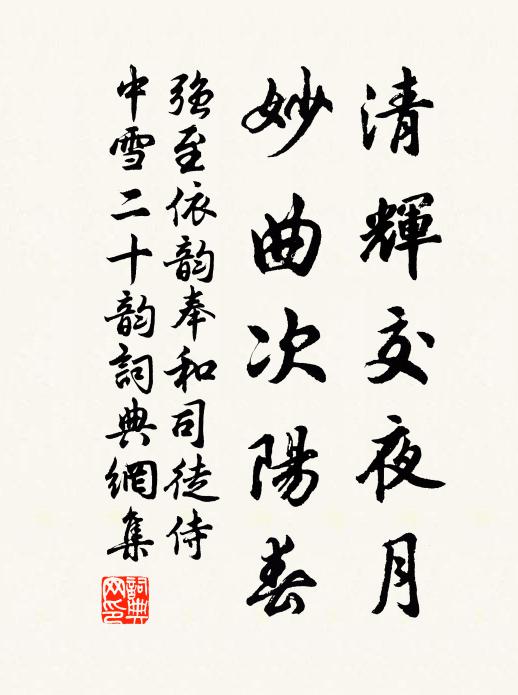 清輝交夜月
妙曲次陽春
強至依韵奉和司徒侍
中雪二十韵詞典網集
詞典网印